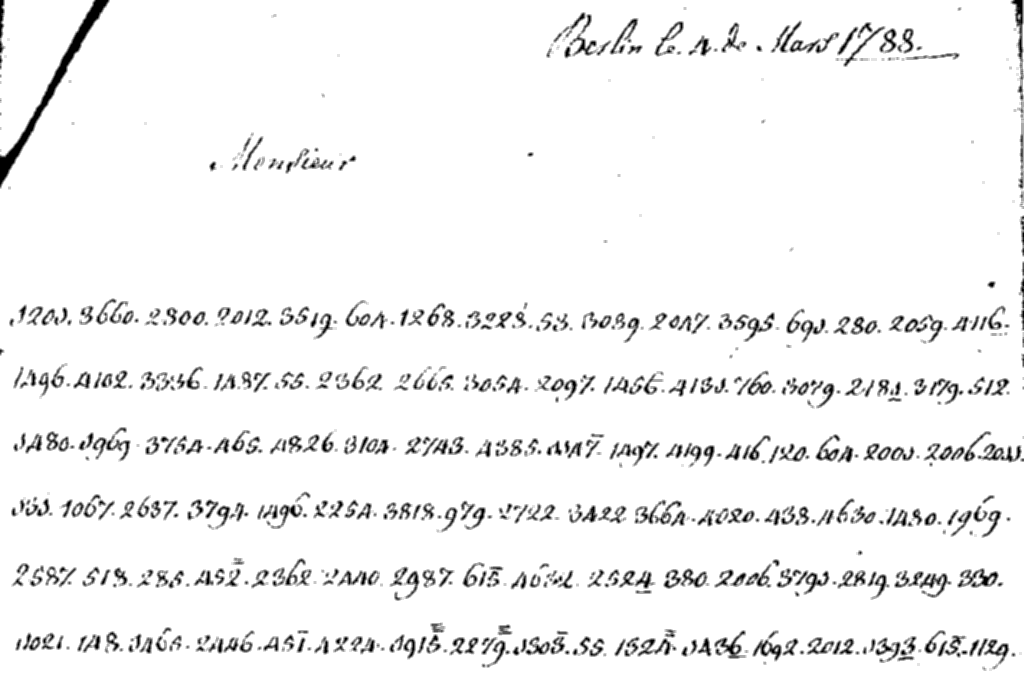 Berlin le. 4. de Mars 1788.
Monsieur
1201. 3660. 2300. 2012. 3519. 604. 1268. 3223. 53. 3039. 2047. 3595. 691. 280. 2059. 4116.
1496. 4102. 3336. 1487. 55. 2362. 2665. 3054. 2097. 1456. 4131. 760. 3079. 2181. 3179. 512.
1480. 1969. 3754. 465. 4826. 3104. 2743. 4385. 1497. 4199. 416. 120. 604. 2001. 2006.
1067. 2637. 3794. 1496. 2254. 3818. 979. 2722. 3422. 3664. 4020. 438. 4630. 1480. 1969.
2587. 518. 285. 452. 2362. 2440. 2987. 615. 2524. 380. 2006. 3791. 2819. 3249. 330.
1021. 148. 3465. 2446. 451. 4224. 1915. 2279. 1503. 55. 1524. 3436. 1692. 2012. 1393. 615. 1129.